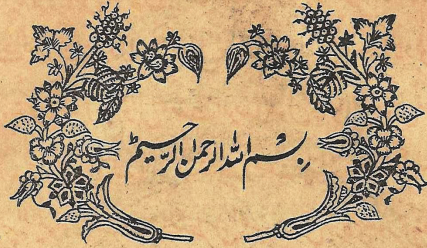 بِسْمِ اللہِ الرَّحمٰنِ الرَّحِیْمِ